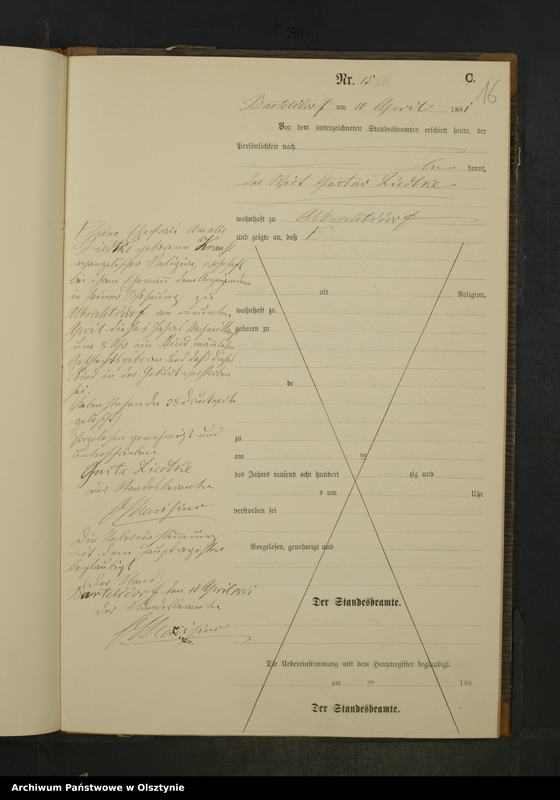 Nr. 15
C.
16
Bartelsdorf am 10 April 1881
Vor dem unterzeichneten Standesbeamten erschien heute, der
Persönlichkeit nach
kannt,
der Wirt Gustav Liedtke
wohnhaft zu Albrechtsdorf
und zeigte an, daß
seine Ehefrau Amalie
Liedtke geborene
evangelischer Religion wohnhaft
bei ihrem Ehemann dem Anzeigenden
in seiner Wohnung zu
Albrechtsdorf am neunten
April dieses Jahres Nachmittag
um 8 Uhr ein Kind männlichen
Geschlechts geboren und daß dieses
Kind in der Geburt verstorben
sei.
38 Druckworte
gelöscht
Vorgelesen genehmigt und
unterschrieben
Gusta Liedtke
Der Standesbeamte
Die Uebereinstimmung
mit dem Hauptregister
beglaubigt
Bartelsdorf den 10 April 1881
Der Standesbeamte
alt Religion,
wohnhaft zu
geboren zu
de
zu
am ten
des Jahres tausend acht hundert zig und
s um Uhr
verstorben sei
Vorgelesen, genehmigt und
Der Standesbeamte.
Die Uebereinstimmung mit dem Hauptregister beglaubigt.
am ten 188
Der Standesbeamte.
Archiwum Państwowe w Olsztynie